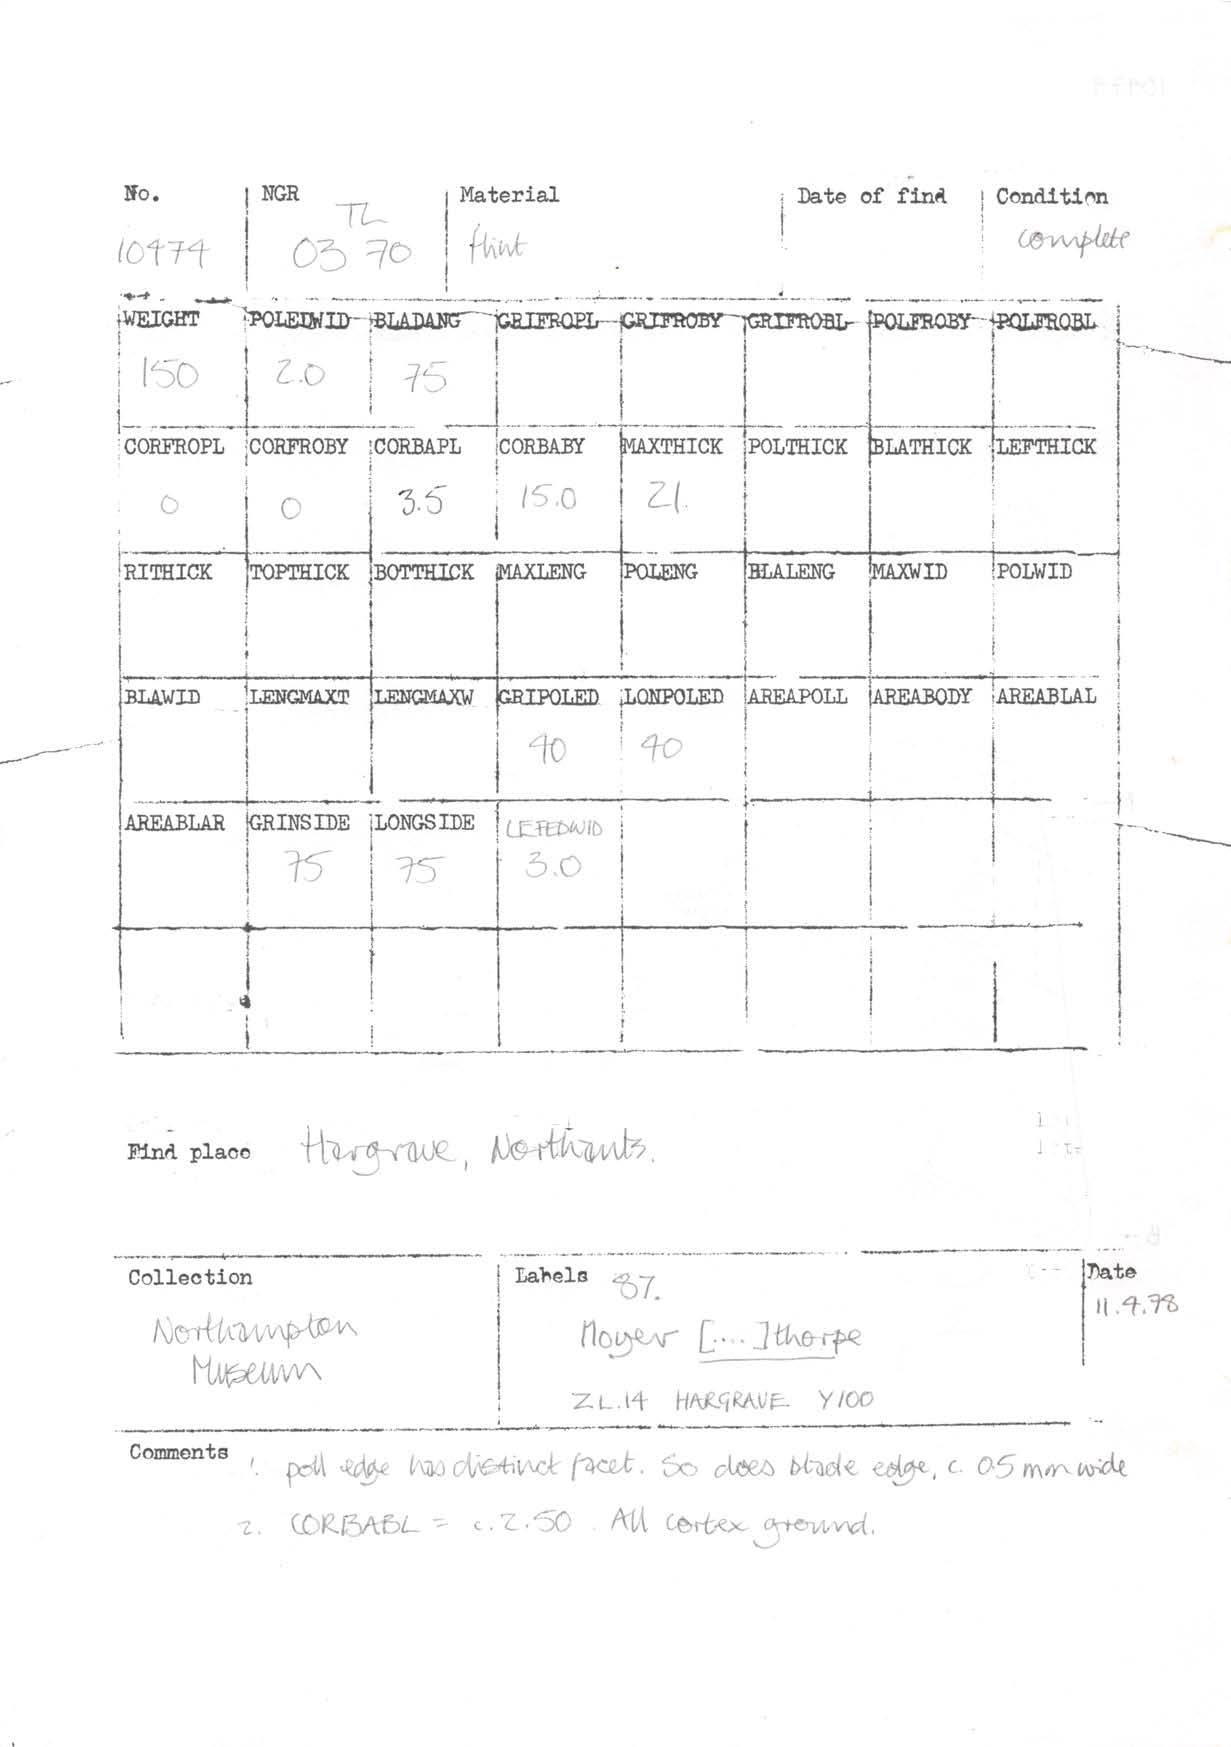 No. NGR Material Date of find Condition
TL
10474 03 70 flint complete
WEIGHT POLEDWID BLADANG GRIFROPL GRIFROBY GRIFROBL POLFROBY POLFROBL
150 2.0 75
CORFROPL CORFROBY CORBAPL CORBABY MAXTHICK POLTHICK BLATHICK LEFTHICK
0 0 3.5 15.0 21.
RITHICK TOPTHICK BOTTHICK MAXLENG POLENG BLALENG MAXWID POLWID
BLAWID LENGMAXT LENGMAXW GRIPOLED LONPOLED AREAPOLL AREABODY AREABLAL
40 40
AREABLAR GRINSIDE LONGSIDE LEFEDWID
75 75 3.0
Find place Hargrave, Northants.
Collection Labels 87. Date
11.4.78
Northampton Moyer [....]thorpe
Museum
ZL.14 HARGRAVE Y100
Comments 1. poll edge has distinct facet. So does blade edge, c. 0.5 mm wide
2. CORBABL = c.2.50. All cortex ground.